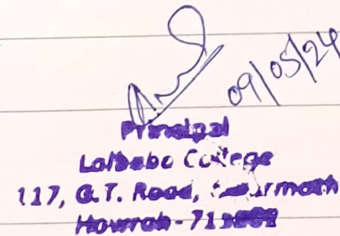 09/05/24
Principal
Lalbaba College
117, G.T. Road,
Howrah - 711